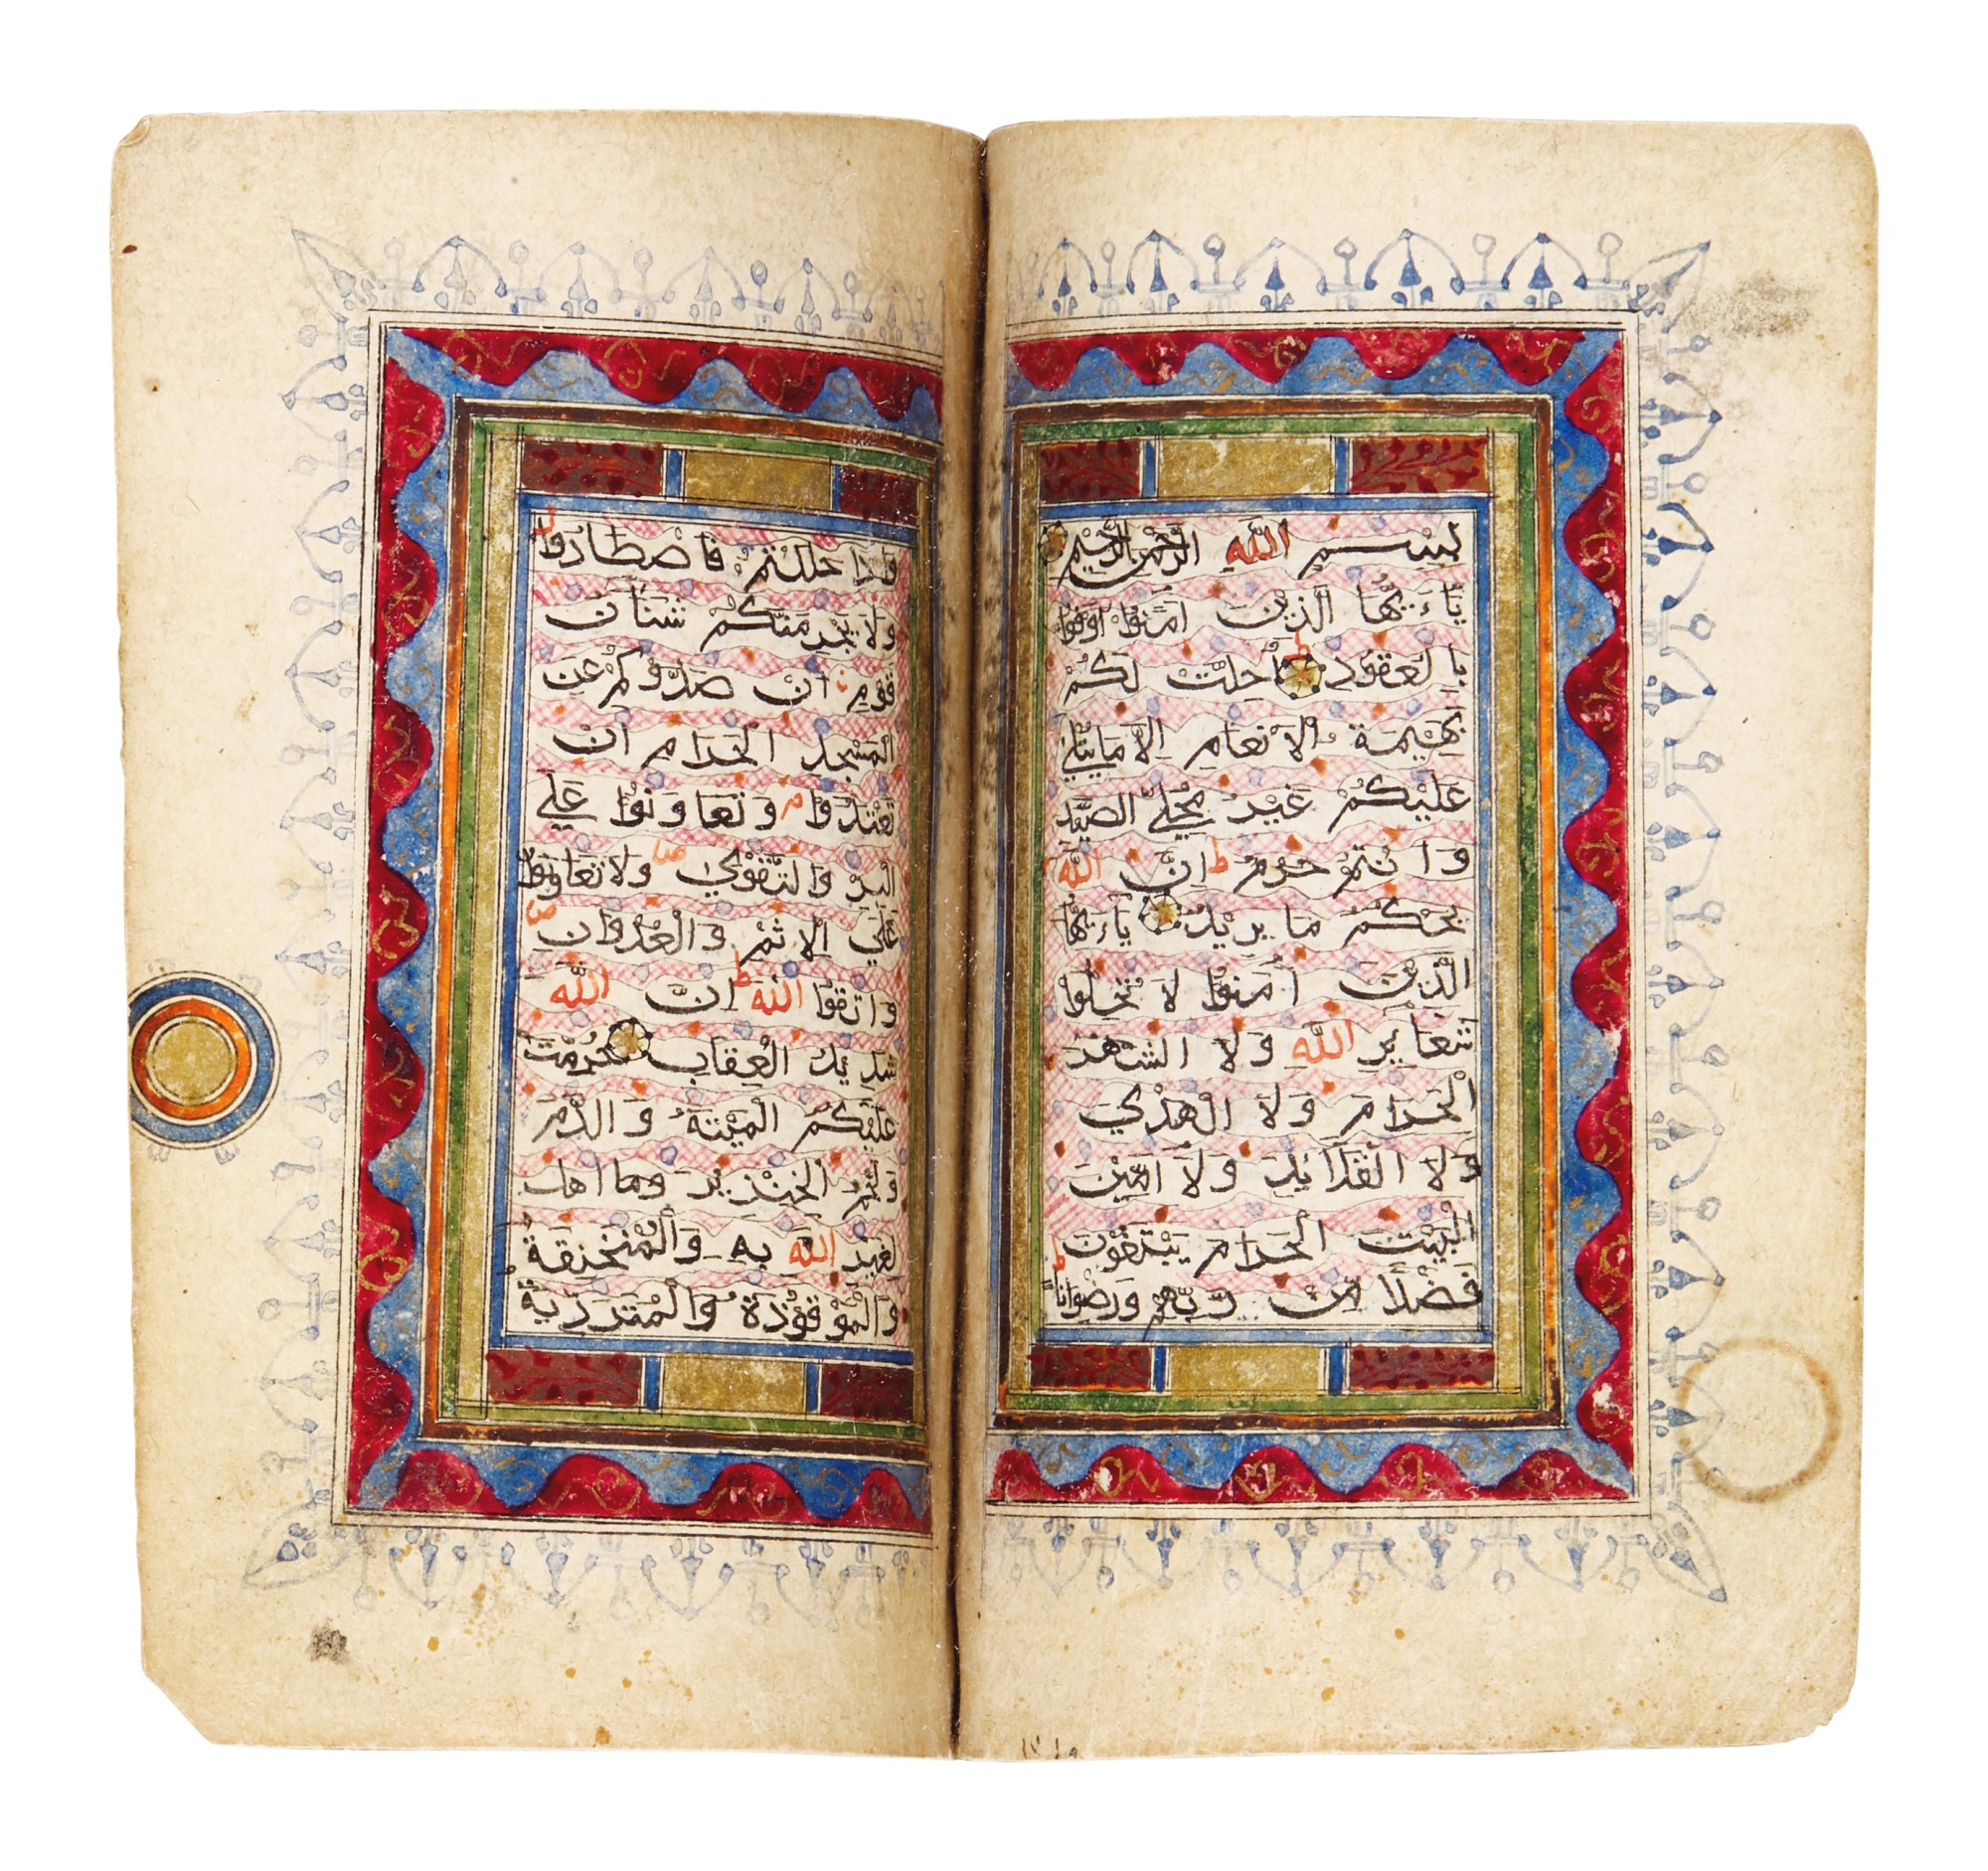 بِسْمِ اللّٰهِ الرَّحْمٰنِ الرَّحِيْمِ
يَاءَيُّهَا الَّذِيْنَ اٰمَنُوْا اَوْفُوْا
بِالْعُقُوْدِ ط اُحِلَّتْ لَكُمْ
بَهِيْمَةُ الْاَنْعَامِ اِلَّا مَا يُتْلٰي
عَلَيْكُمْ غَيْرَ مُحِلِّي الصَّيْدِ
وَاَنْتُمْ حُرُمٌ ط اِنَّ اللّٰهَ
يَحْكُمُ مَا يُرِيْدُ يَاءَيُّهَا
الَّذِيْنَ اٰمَنُوْا لَا تُحِلُّوْا
شَعَآئِرَ اللّٰهِ وَلَا الشَّهْرَ
الْحَرَامَ وَلَا الْهَدْيَ
وَلَا الْقَلَآئِدَ وَلَآ اٰمِّيْنَ
الْبَيْتَ الْحَرَامَ يَبْتَغُوْنَ
فَضْلًا مِّنْ رَّبِّهِمْ وَرِضْوَانًا ط
وَاِذَا حَلَلْتُمْ فَاصْطَادُوْا ط
وَلَا يَجْرِمَنَّكُمْ شَنَاٰنُ
قَوْمٍ اَنْ صَدُّوْكُمْ عَنِ
الْمَسْجِدِ الْحَرَامِ اَنْ
تَعْتَدُوْا م وَتَعَاوَنُوْا عَلَي
الْبِرِّ وَالتَّقْوٰي ص وَلَا تَعَاوَنُوْا
عَلَي الْاِثْمِ وَالْعُدْوَانِ ص
وَاتَّقُوا اللّٰهَ ط اِنَّ اللّٰهَ
شَدِيْدُ الْعِقَابِ حُرِّمَتْ
عَلَيْكُمُ الْمَيْتَةُ وَالدَّمُ
وَلَحْمُ الْخِنْزِيْرِ وَمَا اُهِلَّ
لِغَيْرِ اللّٰهِ بِهٖ وَالْمُنْخَنِقَةُ
وَالْمَوْقُوْذَةُ وَالْمُتَرَدِّيَةُ